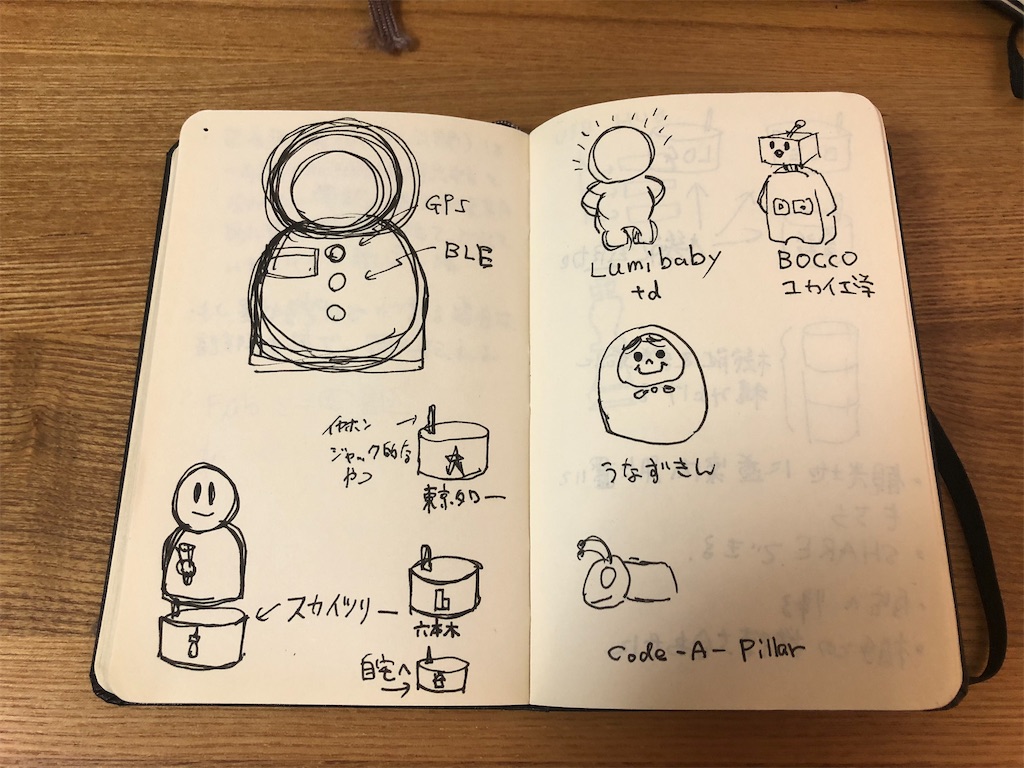 GPS
BLE
イヤホン
ジャック的な
やつ
東京タワー
スカイツリー
六本木
自宅へ
Lumibaby
td
BOCCO
ユカイ工学
うなずきん
Code-A-Pillar